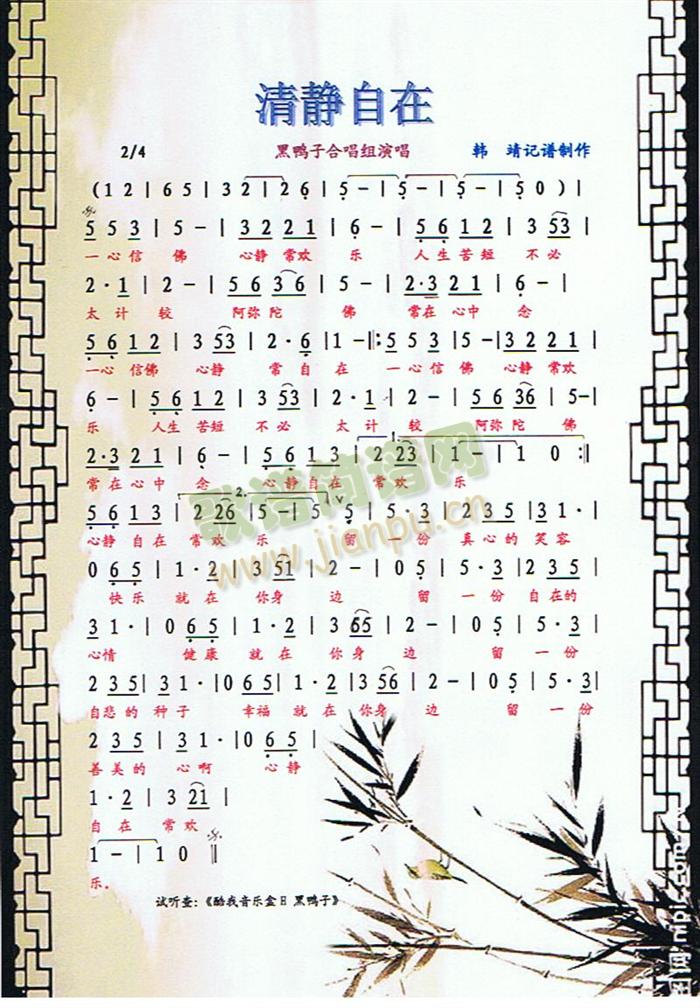 清静自在
2/4 黑鸭子合唱组演唱 韩 靖记谱制作
(1 2 | 6 5 | 3 2 | 2 6 | 5 - | 5 - | 5 - | 5 0 ) |
5 5 3 | 5 - | 3 2 2 1 | 6 - | 5 6 1 2 | 3 53 |
一心信 佛 心静 常欢 乐 人生苦短 不必
2 · 1 | 2 - | 5 6 3 6 | 5 - | 2·3 2 1 | 6 - |
太 计 较 阿弥 陀 佛 常在 心中 念
5 6 1 2 | 3 53 | 2 · 6 | 1 - :‖: 5 5 3 | 5 - | 3 2 2 1 |
一心 信佛 心静 常 自 在 一心信 佛 心静 常欢
6 - | 5 6 1 2 | 3 53 | 2 · 1 | 2 - | 5 6 36 | 5 - |
乐 人生 苦短 不必 太 计 较 阿弥 陀 佛
2·3 2 1 | 6 - | 5 6 1 3 | 2 23 | 1 - | 1 0 :‖
常在心中 念 心静自在 常欢 乐
5 6 1 3 | 2 26 | 5 - | 5 5 | 5 · 3 | 2 3 5 | 3 1 · |
心静 自在 常欢 乐 留 一 份 真心的 笑容
0 6 5 | 1 · 2 | 3 51 | 2 - | 0 5 | 5 · 3 | 2 3 5 |
快乐 就 在 你身 边 留 一 份 自在的
3 1 · | 0 6 5 | 1 · 2 | 3 65 | 2 - | 0 5 | 5 · 3 |
心情 健康 就 在 你 身 边 留 一 份
2 3 5 | 3 1 · | 0 6 5 | 1 · 2 | 3 56 | 2 - | 0 5 | 5 · 3 |
自悲的 种子 幸福 就 在 你身 边 留 一 份
2 3 5 | 3 1 · | 0 6 5 |
善美的 心啊 心静
1 · 2 | 3 21 |
自 在 常欢
1 - | 1 0 ‖
乐.
试听查:《酷我音乐盒日 黑鸭子》
歌谱简谱网
www.jianpu.cn